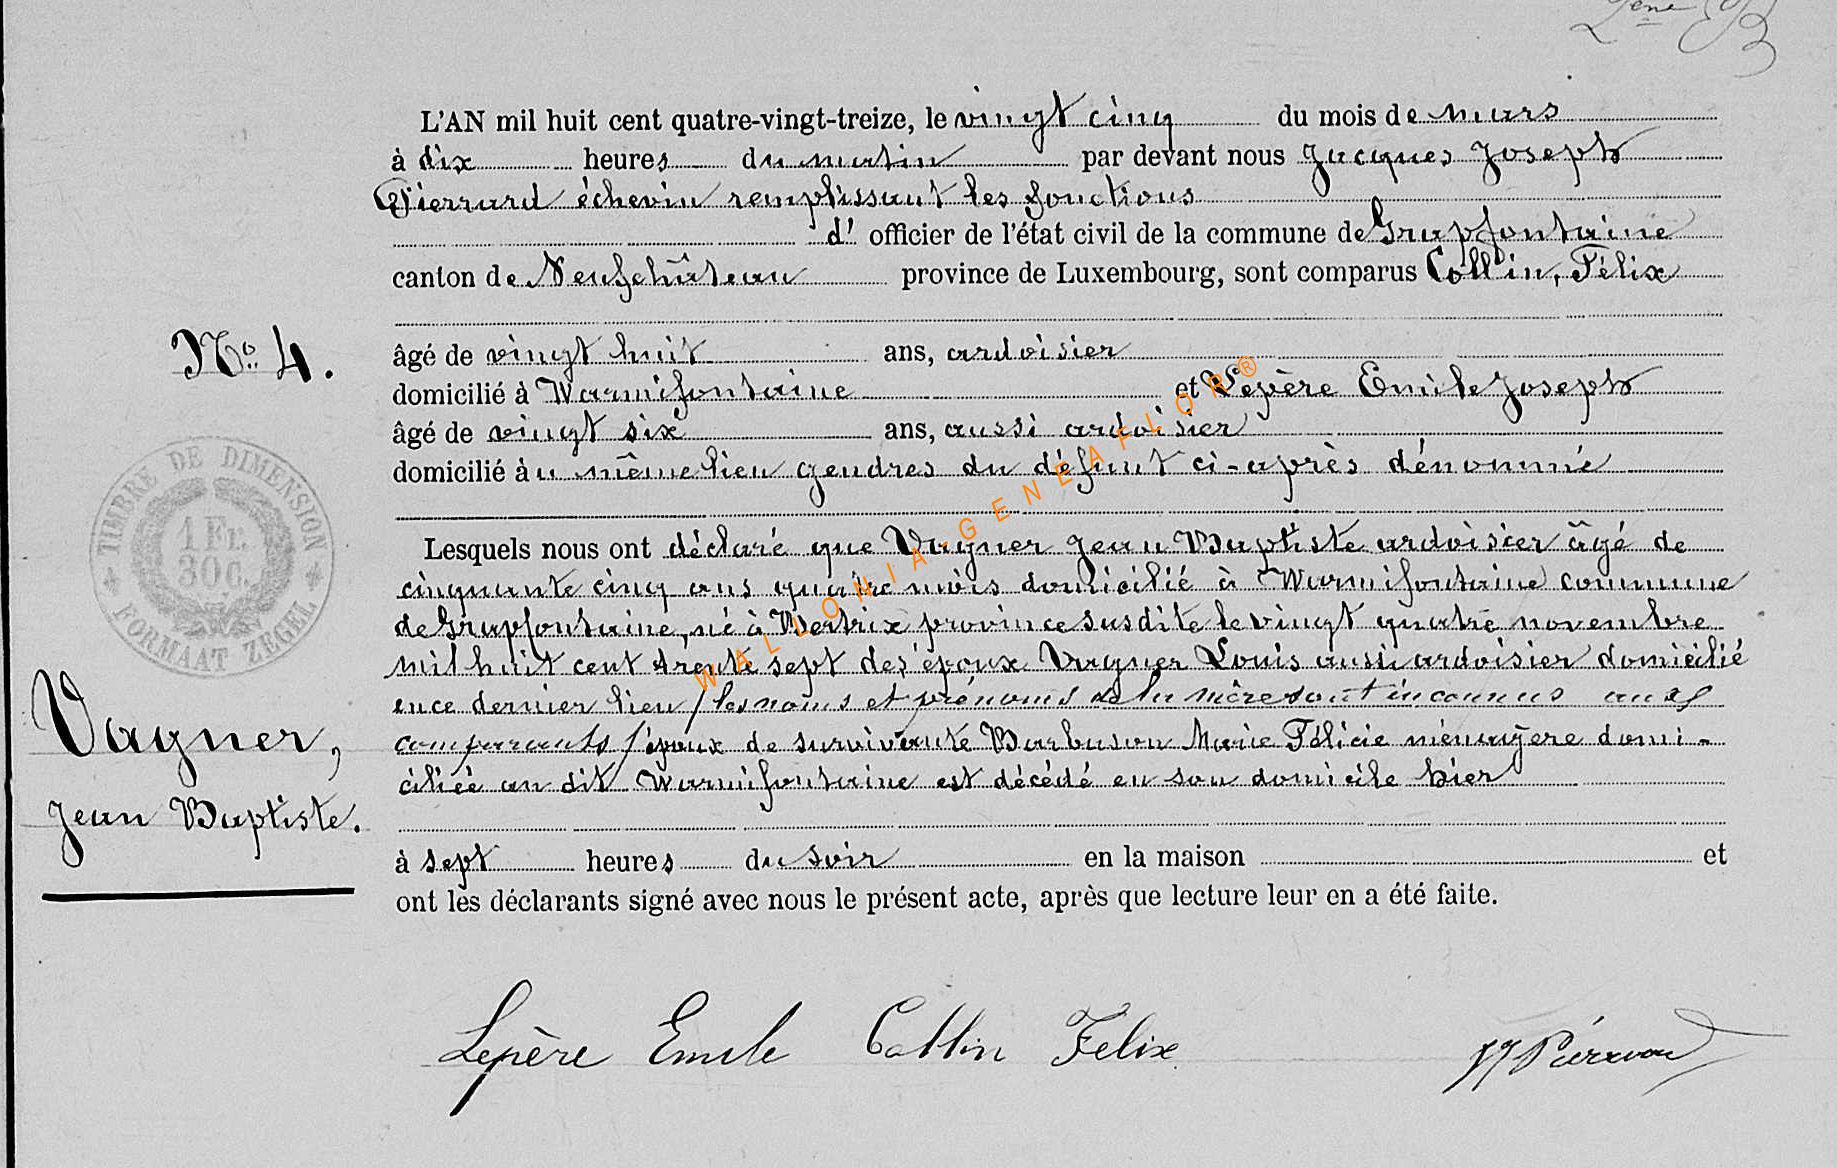 2ème B
L'AN mil huit cent quatre-vingt-treize, le vingt cinq du mois de mars
à dix heures du matin par devant nous Jacques Joseph
Pierrard échevin remplissant les fonctions
d' officier de l'état civil de la commune de Grapfontaine
canton de Neufchâteau province de Luxembourg, sont comparus Collin, Félix
No. 4.
âgé de vingt huit ans, ardoisier
domicilié à Warmifontaine et Lepère Emile Joseph
âgé de vingt six ans, aussi ardoisier
domicilié au même lieu gendres du défunt ci-après dénommé
TIMBRE DE DIMENSION
1 Fr.
30 C.
FORMAAT ZEGEL
WALLONIA-GENEAFLOR®
Lesquels nous ont déclaré que Vagner Jean Baptiste ardoisier âgé de
cinquante cinq ans quatre mois domicilié à Warmifontaine commune
de Grapfontaine, né à Bertrix province susdite le vingt quatre novembre
mil huit cent trente sept des époux Vagner Louis aussi ardoisier domicilié
en ce dernier lieu / les noms et prénoms de la mère sont inconnus aux
comparants / époux de survivante Barbuson Marie Félicie ménagère domi-
ciliée au dit Warmifontaine est décédé en son domicile hier
Vagner,
Jean Baptiste.
à sept heures du soir en la maison et
ont les déclarants signé avec nous le présent acte, après que lecture leur en a été faite.
Lepère Emile Collin Felix JJ Pierrard